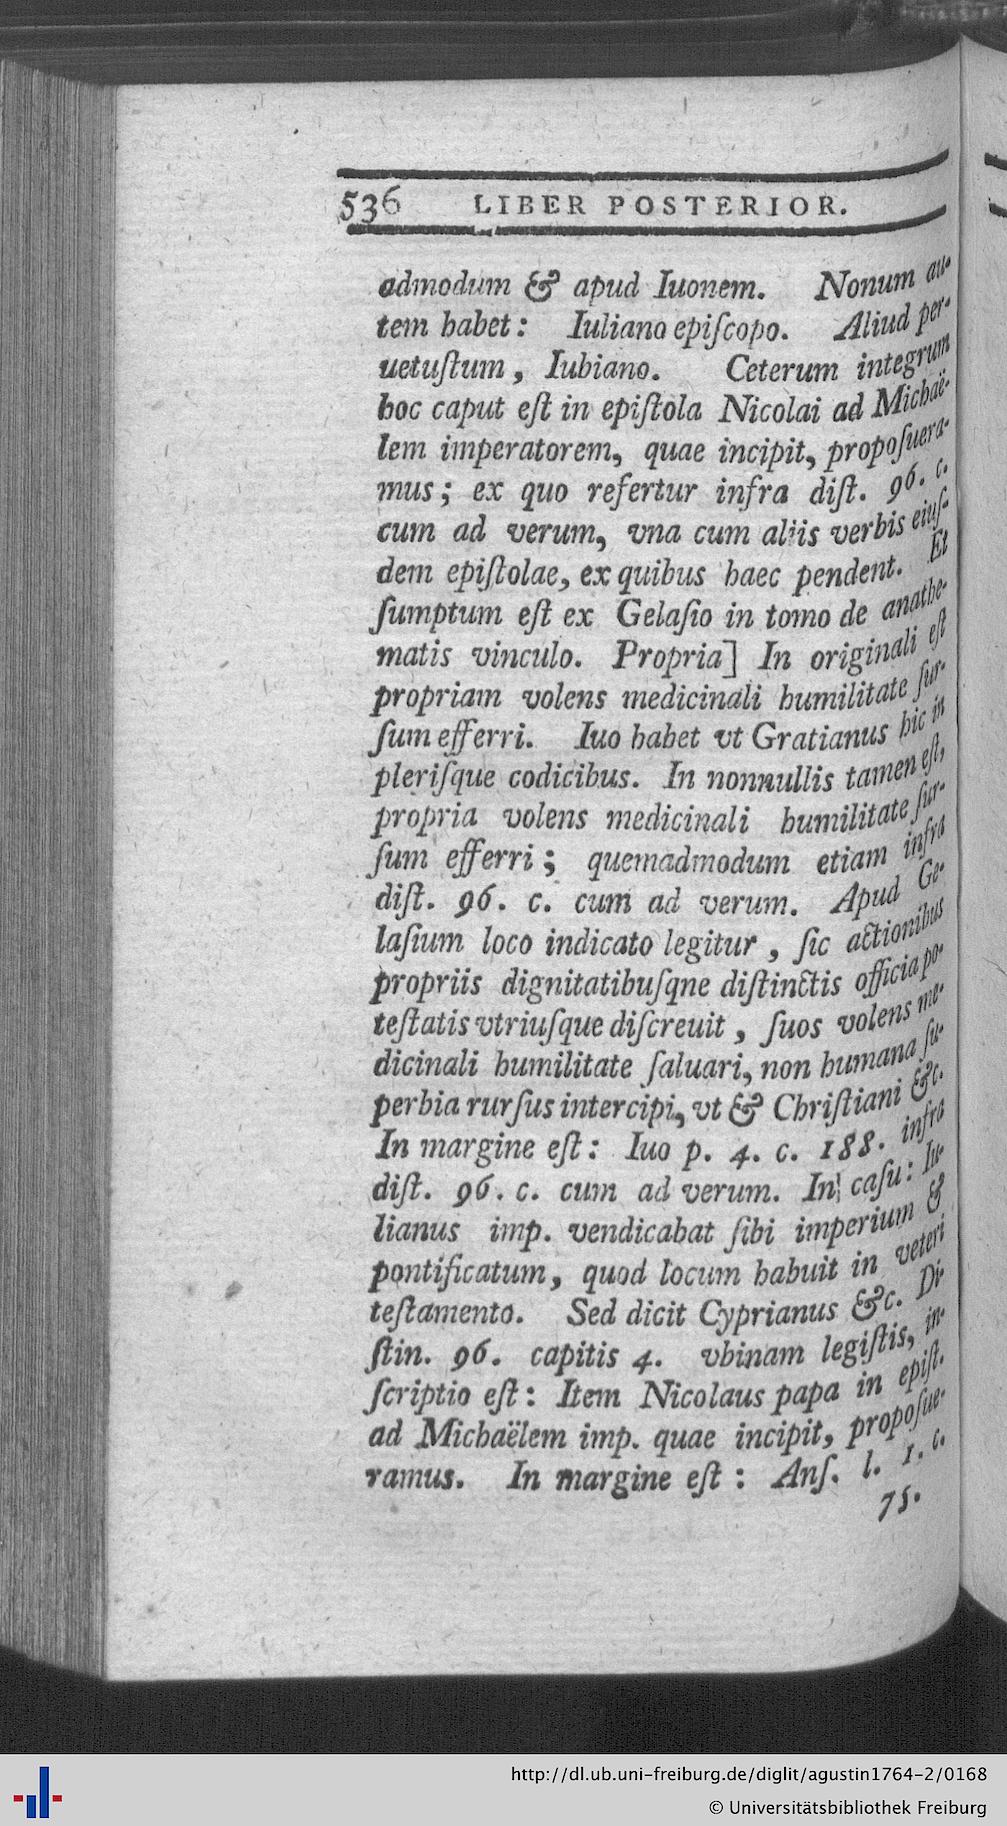 536 LIBER POSTERIOR.
admodum & apud Iuonem. Nonum au-
tem habet: Iuliano episcopo. Aliud per-
uetuſtum, Iubiano. Ceterum integrum
hoc caput eſt in epiſtola Nicolai ad Michaë-
lem imperatorem, quae incipit, propoſuera-
mus; ex quo refertur infra diſt. 96. c.
cum ad verum, vna cum aliis verbis eiuſ-
dem epiſtolae, ex quibus haec pendent. Et
ſumptum eſt ex Gelaſio in tomo de anathe-
matis vinculo. Propria] In originali eſt
propriam volens medicinali humilitate ſur-
ſum efferri. Iuo habet vt Gratianus hic in
pleriſque codicibus. In nonnullis tamen eſt,
propria volens medicinali humilitate ſur-
ſum efferri; quemadmodum etiam infra
diſt. 96. c. cum ad verum. Apud Ge-
laſium loco indicato legitur, ſic actionibus
propriis dignitatibuſqne diſtinctis officia po-
teſtatis vtriuſque diſcreuit, ſuos volens me-
dicinali humilitate ſaluari, non humana ſu-
perbia rurſus intercipi, vt & Chriſtiani &c.
In margine eſt: Iuo p. 4. c. 188. infra
diſt. 96. c. cum ad verum. In caſu: Iu-
lianus imp. vendicabat ſibi imperium &
pontificatum, quod locum habuit in veteri
teſtamento. Sed dicit Cyprianus &c. Di-
ſtin. 96. capitis 4. vbinam legiſtis, in-
ſcriptio eſt: Item Nicolaus papa in epiſt.
ad Michaëlem imp. quae incipit, propoſue-
ramus. In margine eſt: Anſ. l. 1. c.
75.
http://dl.ub.uni-freiburg.de/diglit/agustin1764-2/0168
© Universitätsbibliothek Freiburg